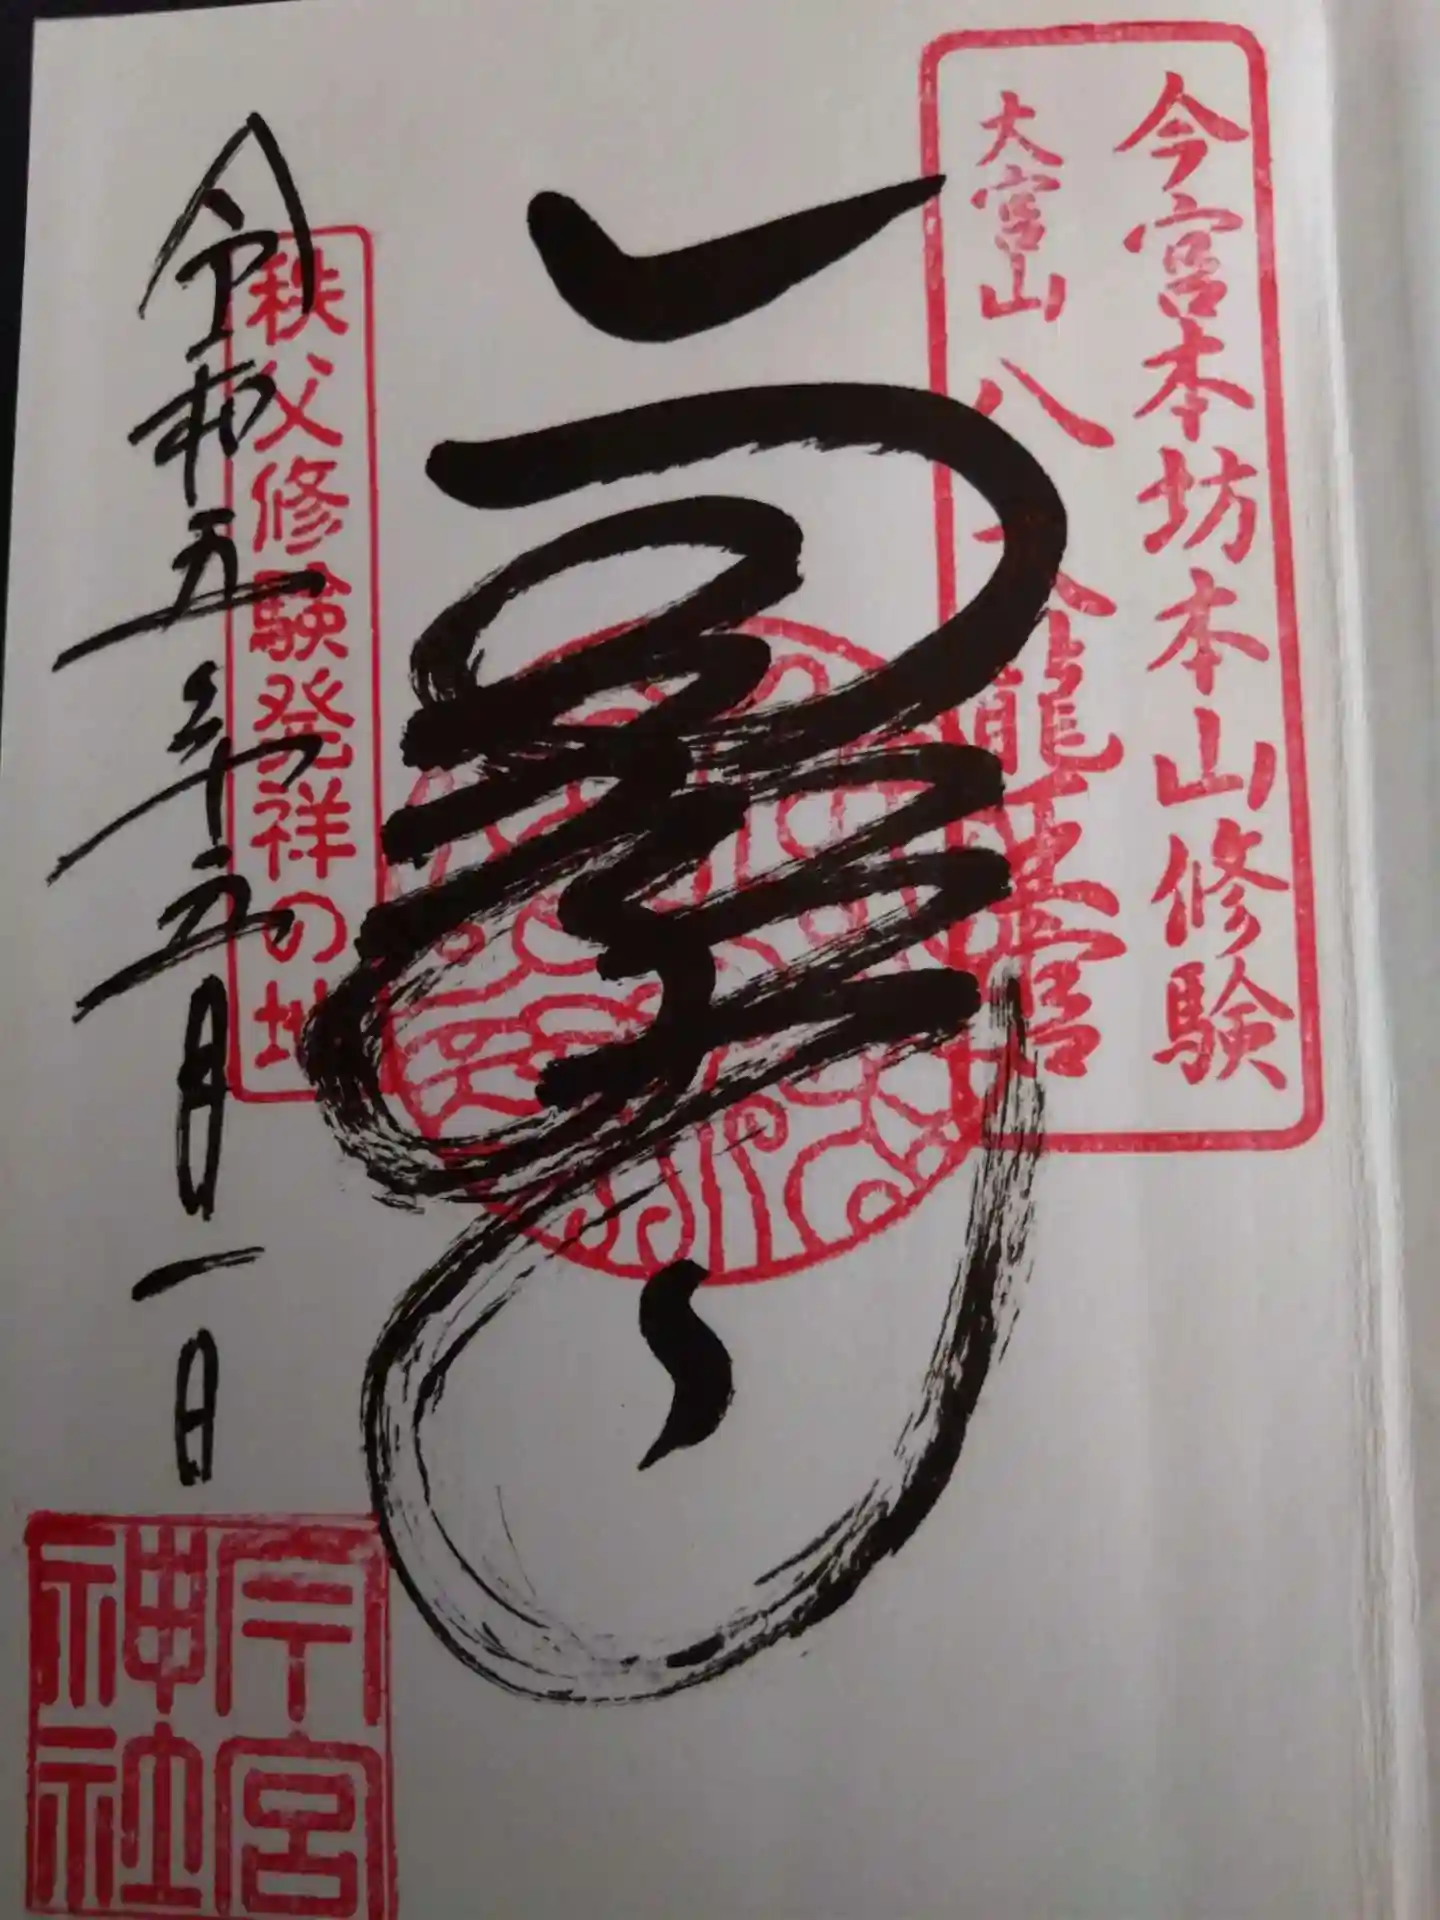 今宮本坊本山修験
大宮山八大龍王宮
秩父修験発祥の地
令和五年五月一日
今宮
神社